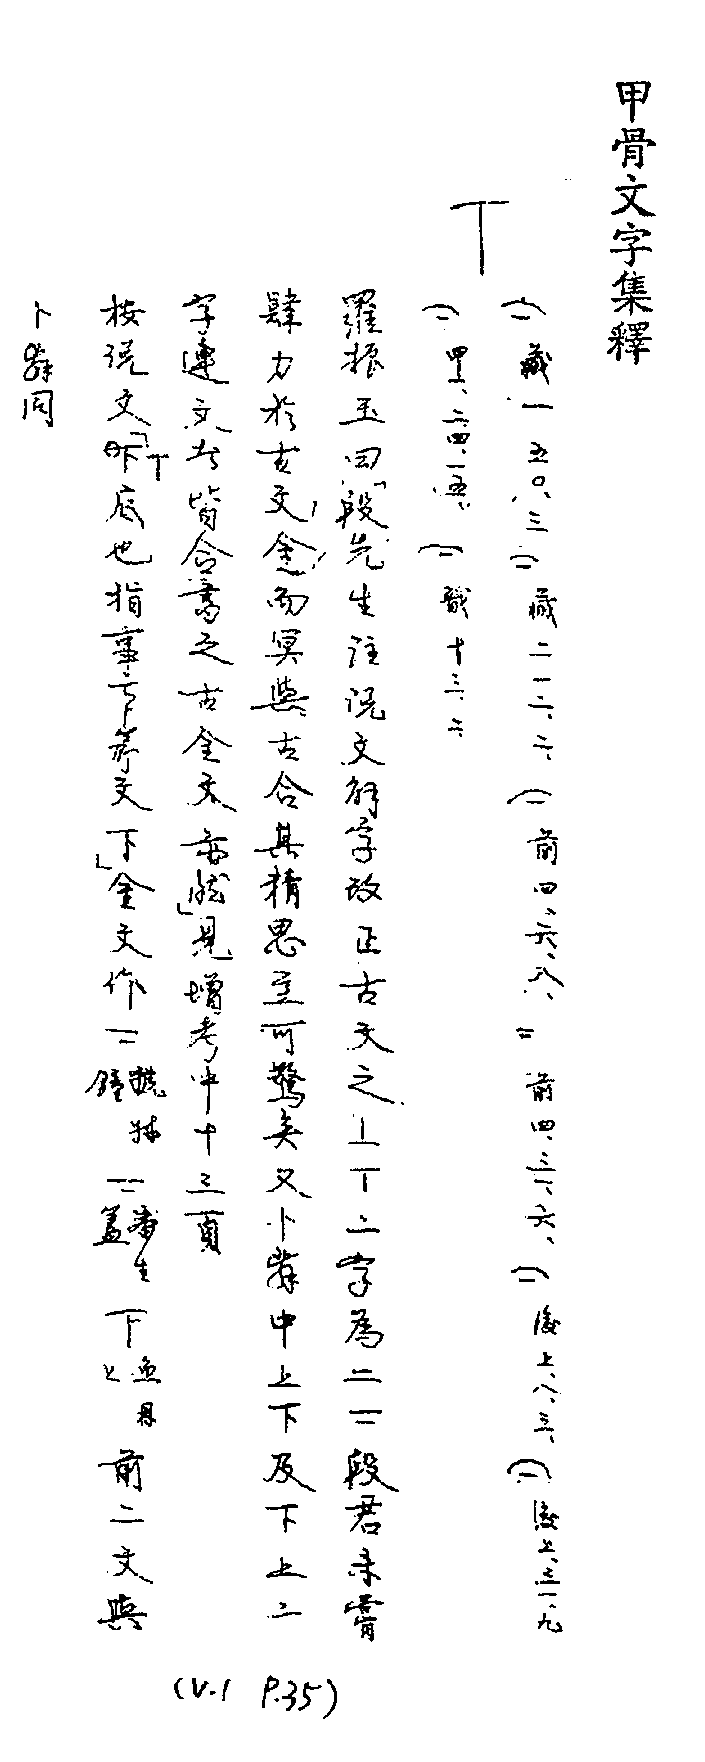 甲骨文字集釋
丅
藏一五〇、三 藏二一二、六 前四、六、八、 前四、三六、六、 後上、八、三、 後上、三一、九
甲、二、四、一五、 戩十三、六
羅振玉曰「段先生注說文解字改正古文之丄丅二字為二二段君未嘗
肆力於古文金而冥與古合其精思至可驚矣又卜辭中上下及下上二
字連文者皆合書之古金文亦然」見增考中十三頁
按說文「丅底也指事下篆文下」金文作二虢叔鐘二番生蓋下魚匕前二文與
卜辭同
(V.1 P.35)